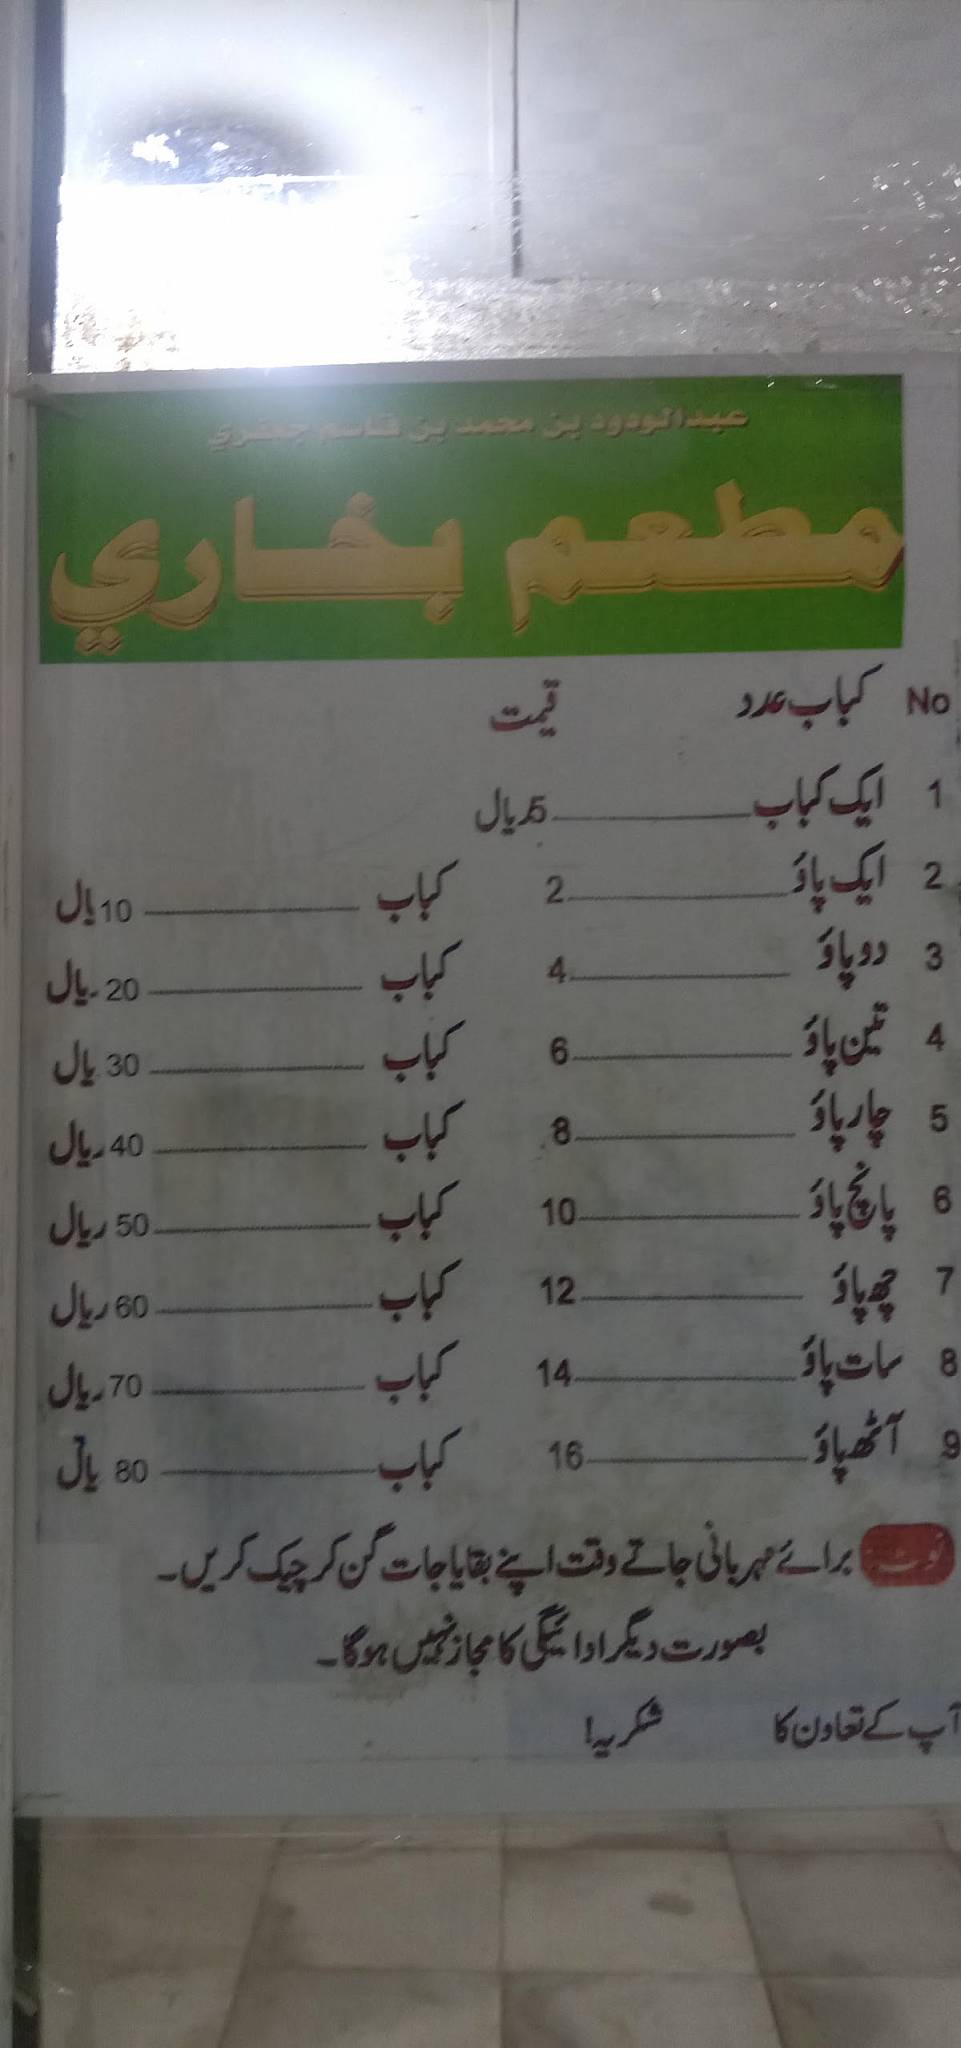 عبدالودود بن محمد بن قاسم جعفري
مطعم بخاري
No کباب عدد قیمت
1 ایک کباب 5ریال
2 ایک پاؤ 2 کباب 10 یال
3 دو پاؤ 4 کباب 20 ریال
4 تین پاؤ 6 کباب 30 یال
5 چار پاؤ 8 کباب 40 ریال
6 پانچ پاؤ 10 کباب 50 ریال
7 چھ پاؤ 12 کباب 60 ریال
8 سات پاؤ 14 کباب 70 ریال
9 آٹھ پاؤ 16 کباب 80 یال
نوٹ برائے مہربانی جاتے وقت اپنے بقایا جات گن کر چیک کریں۔
بصورت دیگر ادائیگی کا مجاز نہیں ہوگا۔
آپ کے تعاون کا شکریہ!